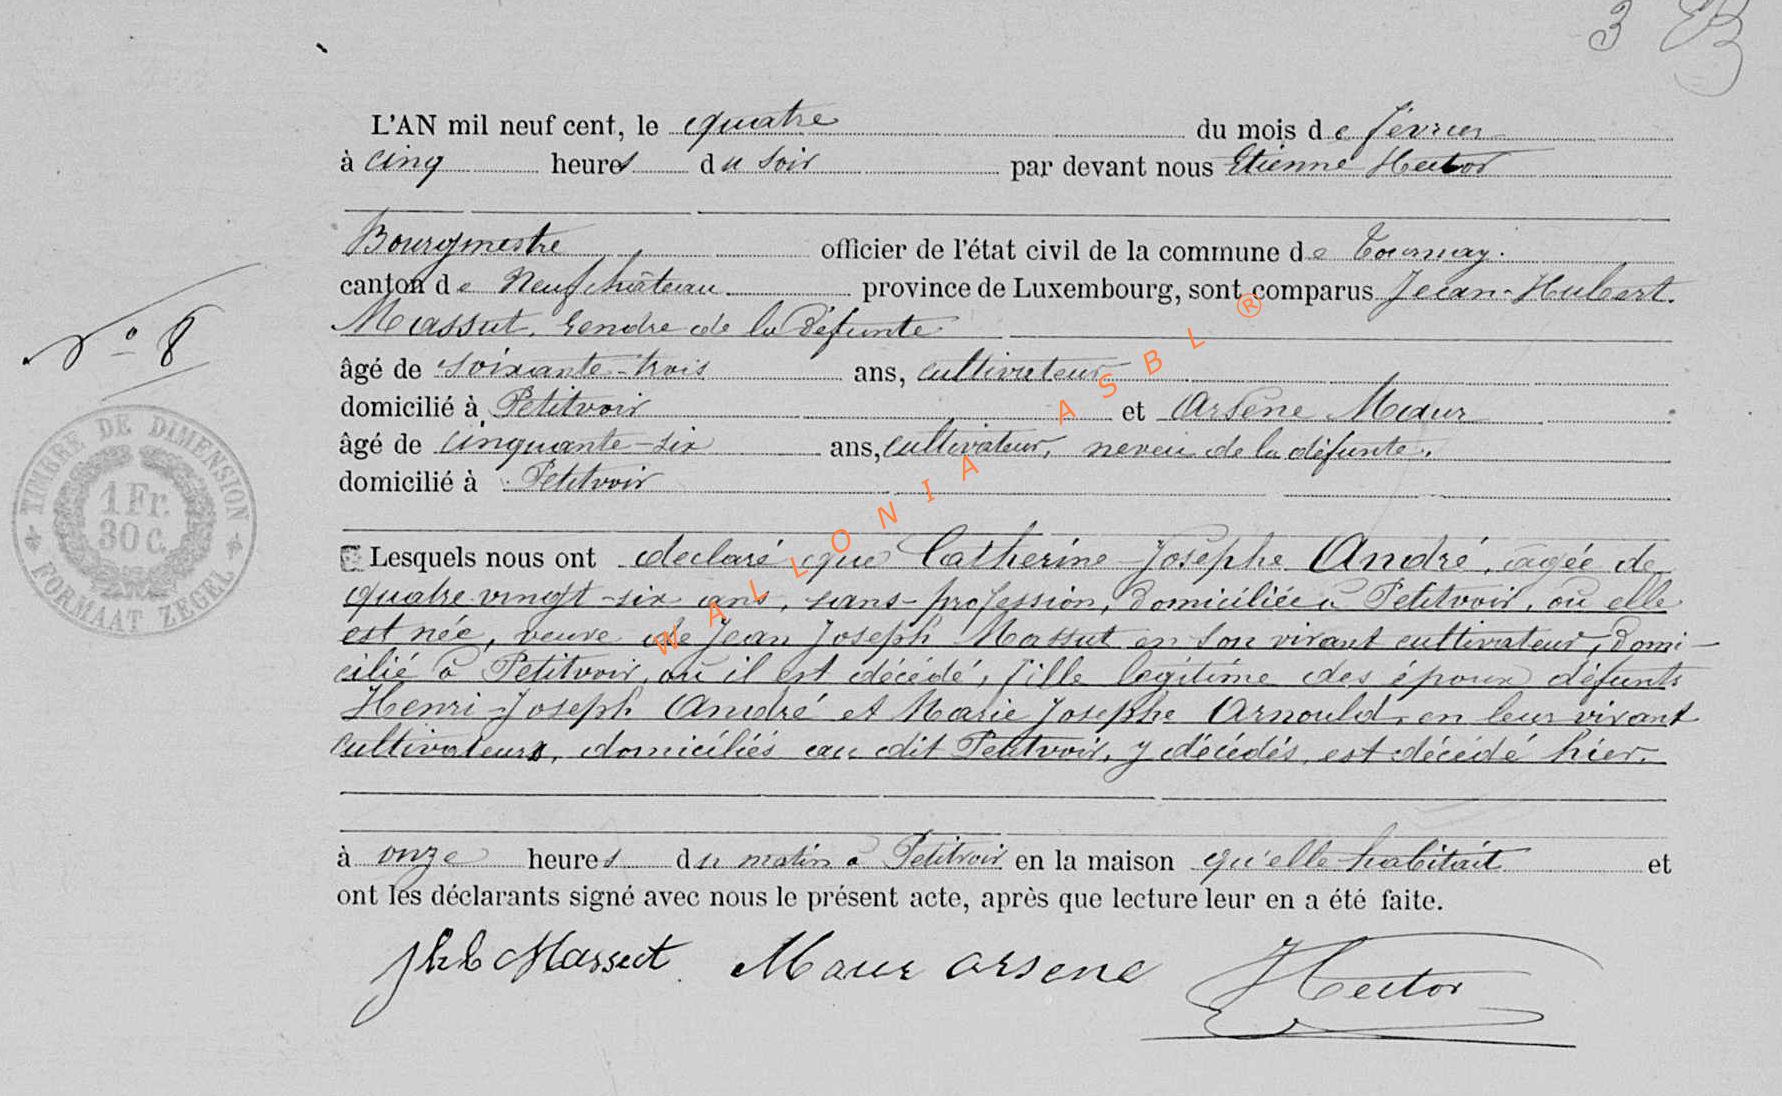 3
L'AN mil neuf cent, le quatre du mois de février
à cinq heures du soir par devant nous Etienne Hector
Bourgmestre officier de l'état civil de la commune de Tournay.
canton de Neufchâteau province de Luxembourg, sont comparus Jean-Hubert
Massut, Gendre de la défunte
N° 8
âgé de soixante-trois ans, cultivateur
domicilié à Petitvoir et Arsène Maur
âgé de cinquante-six ans, cultivateur, neveu de la défunte,
domicilié à Petitvoir
TIMBRE DE DIMENSION
1 Fr.
30 C.
FORMAAT ZEGEL
Lesquels nous ont declaré que Catherine Josephe André, agée de
quatre-vingt-six ans, sans-profession, domiciliée à Petitvoir, où elle
est née, veuve de Jean Joseph Massut en son vivant cultivateur, domi-
cilié à Petitvoir, où il est décédé, fille légitime des époux défunts
Henri-Joseph André et Marie Josephe Arnould, en leur vivant
cultivateurs, domiciliés au dit Petitvoir, y décédés, est décédé hier.
à onze heures du matin à Petitvoir en la maison qu'elle habitait et
ont les déclarants signé avec nous le présent acte, après que lecture leur en a été faite.
Massut Maur arsene Hector
WALLONIA ASBL ®